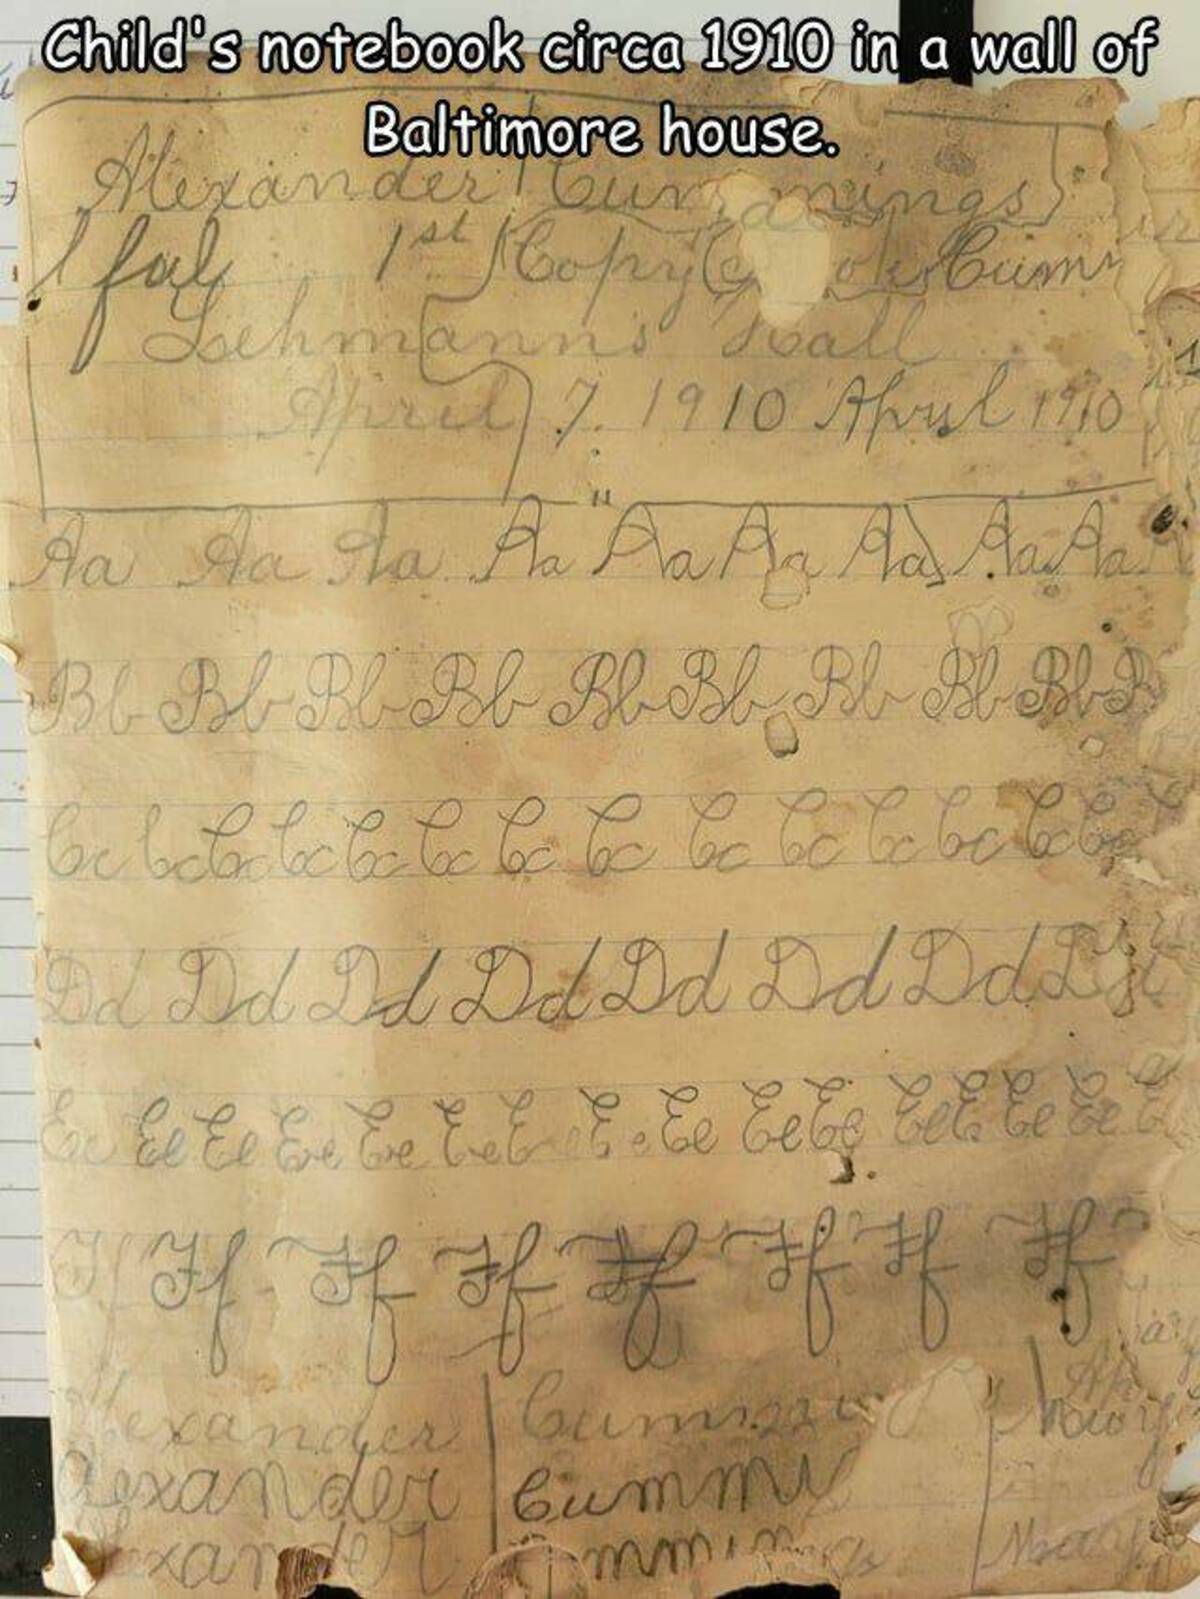 Child's notebook circa 1910 in a wall of
Baltimore house.
Alexander Cummings
1st Copy Cumm
Lehmann's Hall
April 7. 1910 April 1910
Aa Aa Aa Aa Aa Aa Aa Aa Aa A
Bb Bb Bb Bb Bb Bb Bb Bb Bb B
Cc Cc Cc Cc Cc Cc Cc Cc Cc Cc Cc Cc Cc Cc
Dd Dd Dd Dd Dd Dd Dd D
Ee Ee Ee Ee Ee Ee E e E e Ee Ee Ee Ee E Ee Ee E
Ff Ff Ff Ff Ff Ff Ff Ff
Alexander Cummin
Alexander Cummi
exander mmings